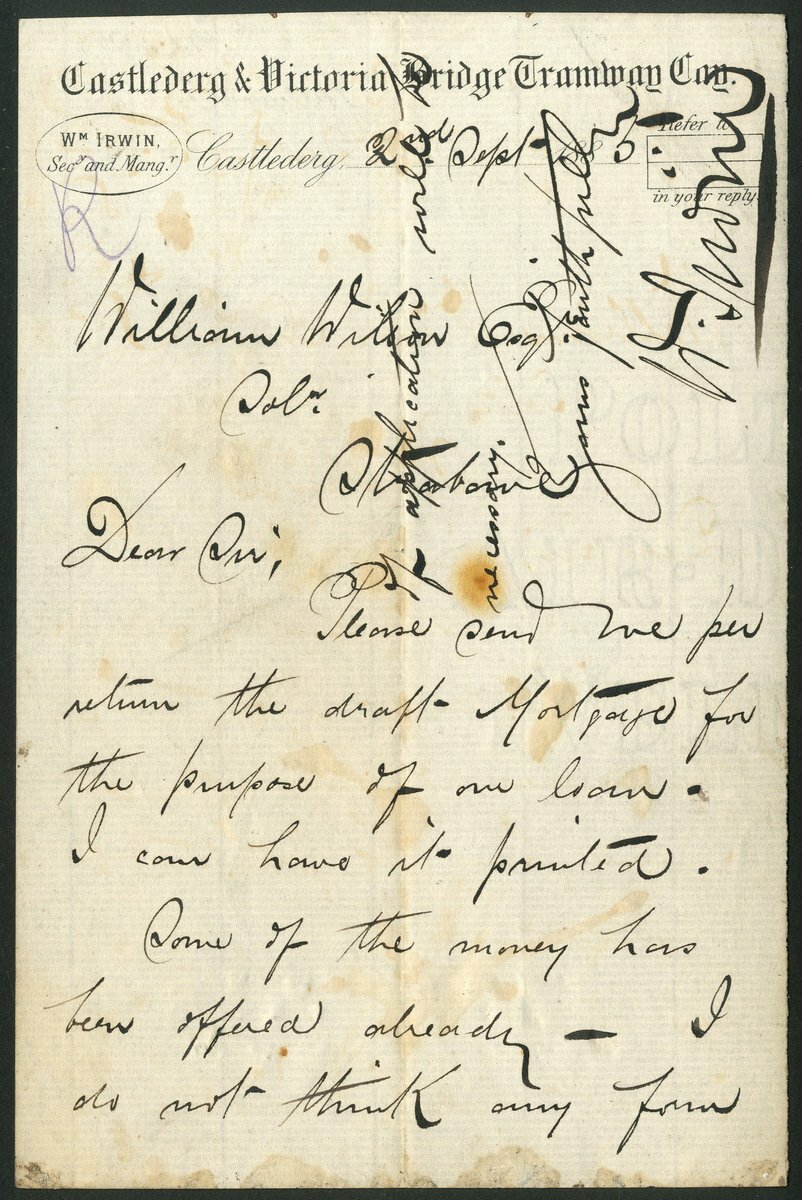 Castlederg & Victoria Bridge Tramway Coy.
Wm IRWIN,
Secy and Mangr
Castlederg, 2nd Sept 1885
Refer to
in your reply.
R
William Wilson Esqr
Solr
Strabane
Dear Sir,
Please send me per
return the draft Mortgage for
the purpose of our loan.
I can have it printed.
Some of the money has
been offered already — I
do not think any form
of application will be
necessary.
Yours faithfully
W. Irwin